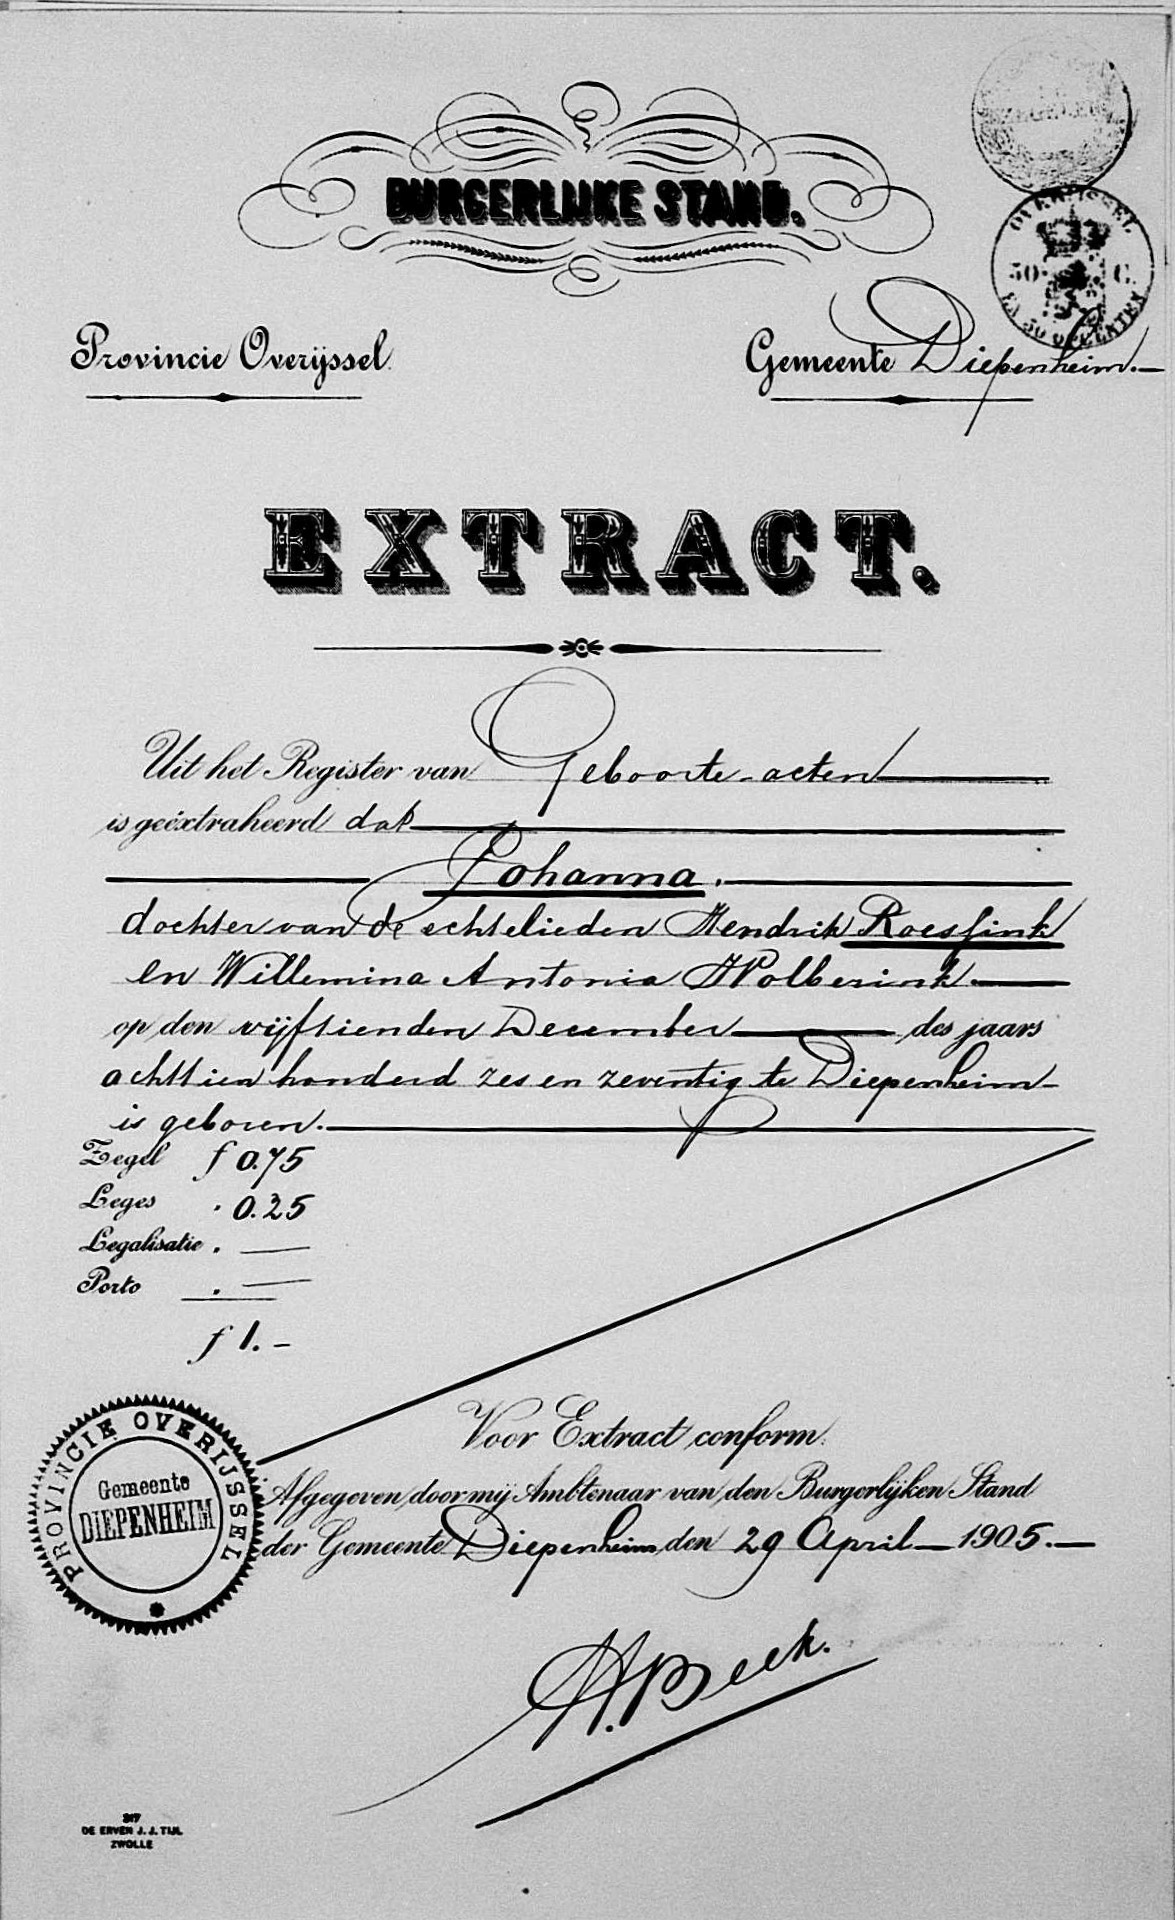 BURGERLIJKE STAND.
OVERIJSSEL
50 C.
EN 50 OPCENTEN
Provincie Overijssel.
Gemeente Diepenheim.
EXTRACT.
Uit het Register van Geboorte-acten
is geëxtraheerd dat
Johanna.
dochter van de echtelieden Hendrik Roesfink
en Willemina Antonia Wolberink.
op den vijftienden December des jaars
achttien honderd zes en zeventig te Diepenheim
is geboren.
Zegel f 0.75
Leges " 0.25
Legalisatie " —
Porto " —
f 1.-
PROVINCIE OVERIJSSEL
Gemeente
DIEPENHEIM
Voor Extract conform.
Afgegeven door mij Ambtenaar van den Burgerlijken Stand
der Gemeente Diepenheim, den 29 April 1905.
H. Beek.
317
DE ERVEN J. J. TIJL
ZWOLLE